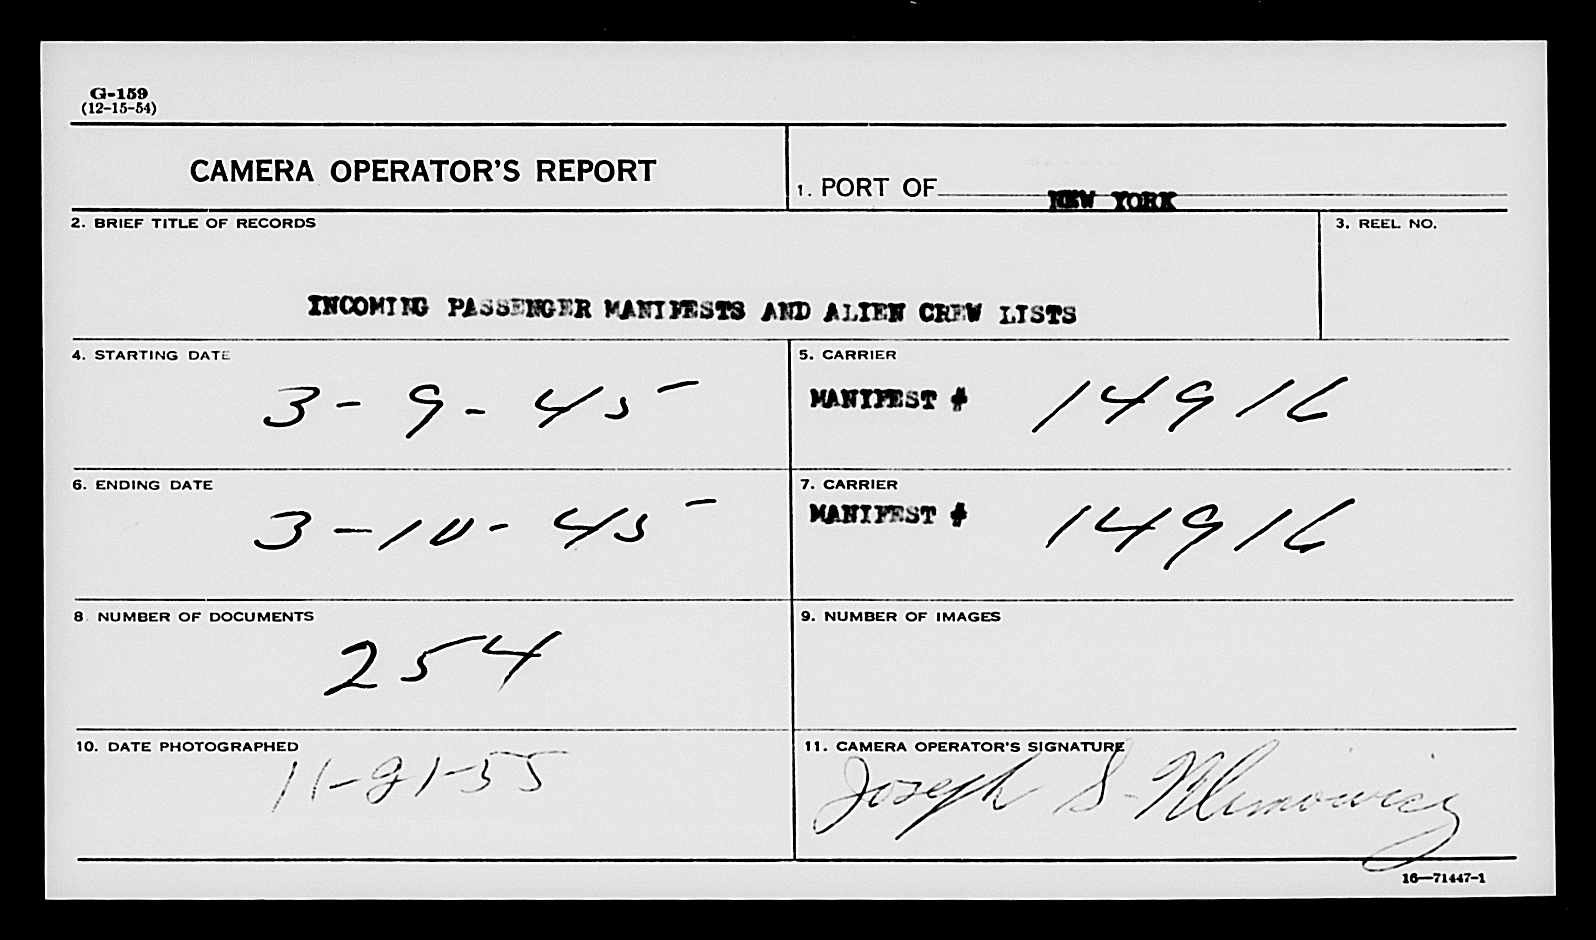 G-159
(12-15-54)
CAMERA OPERATOR'S REPORT
1. PORT OF NEW YORK
2. BRIEF TITLE OF RECORDS
3. REEL NO.
INCOMING PASSENGER MANIFESTS AND ALIEN CREW LISTS
4. STARTING DATE
3-9-45
5. CARRIER
MANIFEST # 14916
6. ENDING DATE
3-10-45
7. CARRIER
MANIFEST # 14916
8. NUMBER OF DOCUMENTS
254
9. NUMBER OF IMAGES
10. DATE PHOTOGRAPHED
11-21-55
11. CAMERA OPERATOR'S SIGNATURE
Joseph S.
16—71447-1